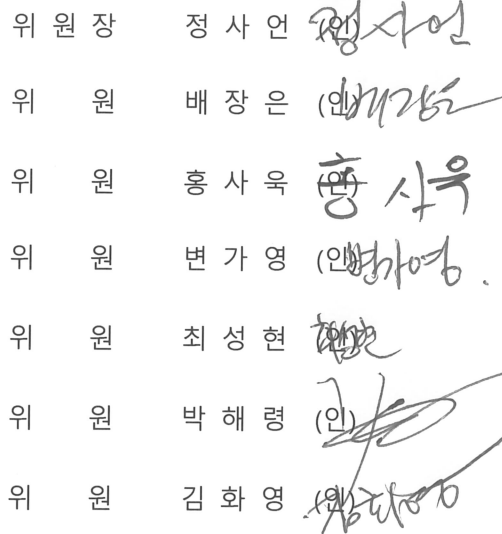 위 원 장 정 사 언 (인) 정사언
위 원 배 장 은 (인) 배장은
위 원 홍 사 욱 (인) 홍사욱
위 원 변 가 영 (인) 변가영
위 원 최 성 현 (인)
위 원 박 해 령 (인)
위 원 김 화 영 (인) 김화영